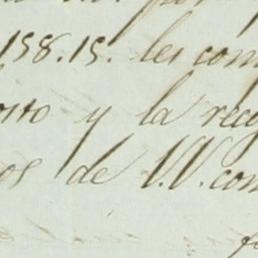 158.15. les com
osto y la reci
os de V.V. con